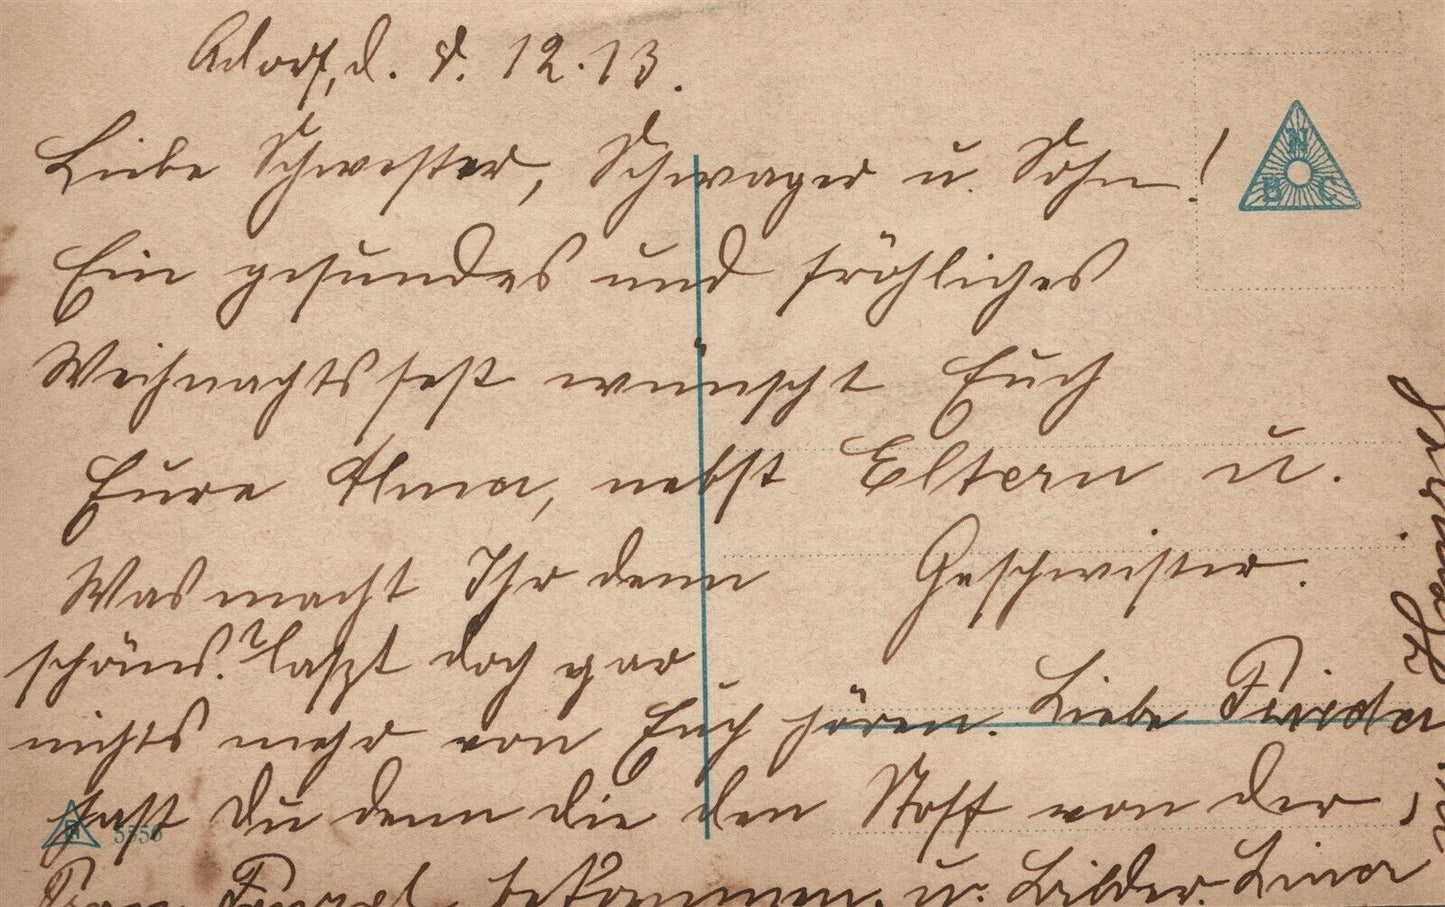 Adorf, d. 8. 12. 13.
Liebe Schwester, Schwager u. Sohn!
Ein gesundes und fröhliches
Weihnachtsfest wünscht Euch
Eure Alma, nebst Eltern u.
Geschwister.
Was macht Ihr denn
schönes? laßt doch gar
nichts mehr von Euch hören. Liebe Frieda
hast Du denn die den Stoff von der
Frau bekommen. u. Bilder. Lina
N
B C
5556